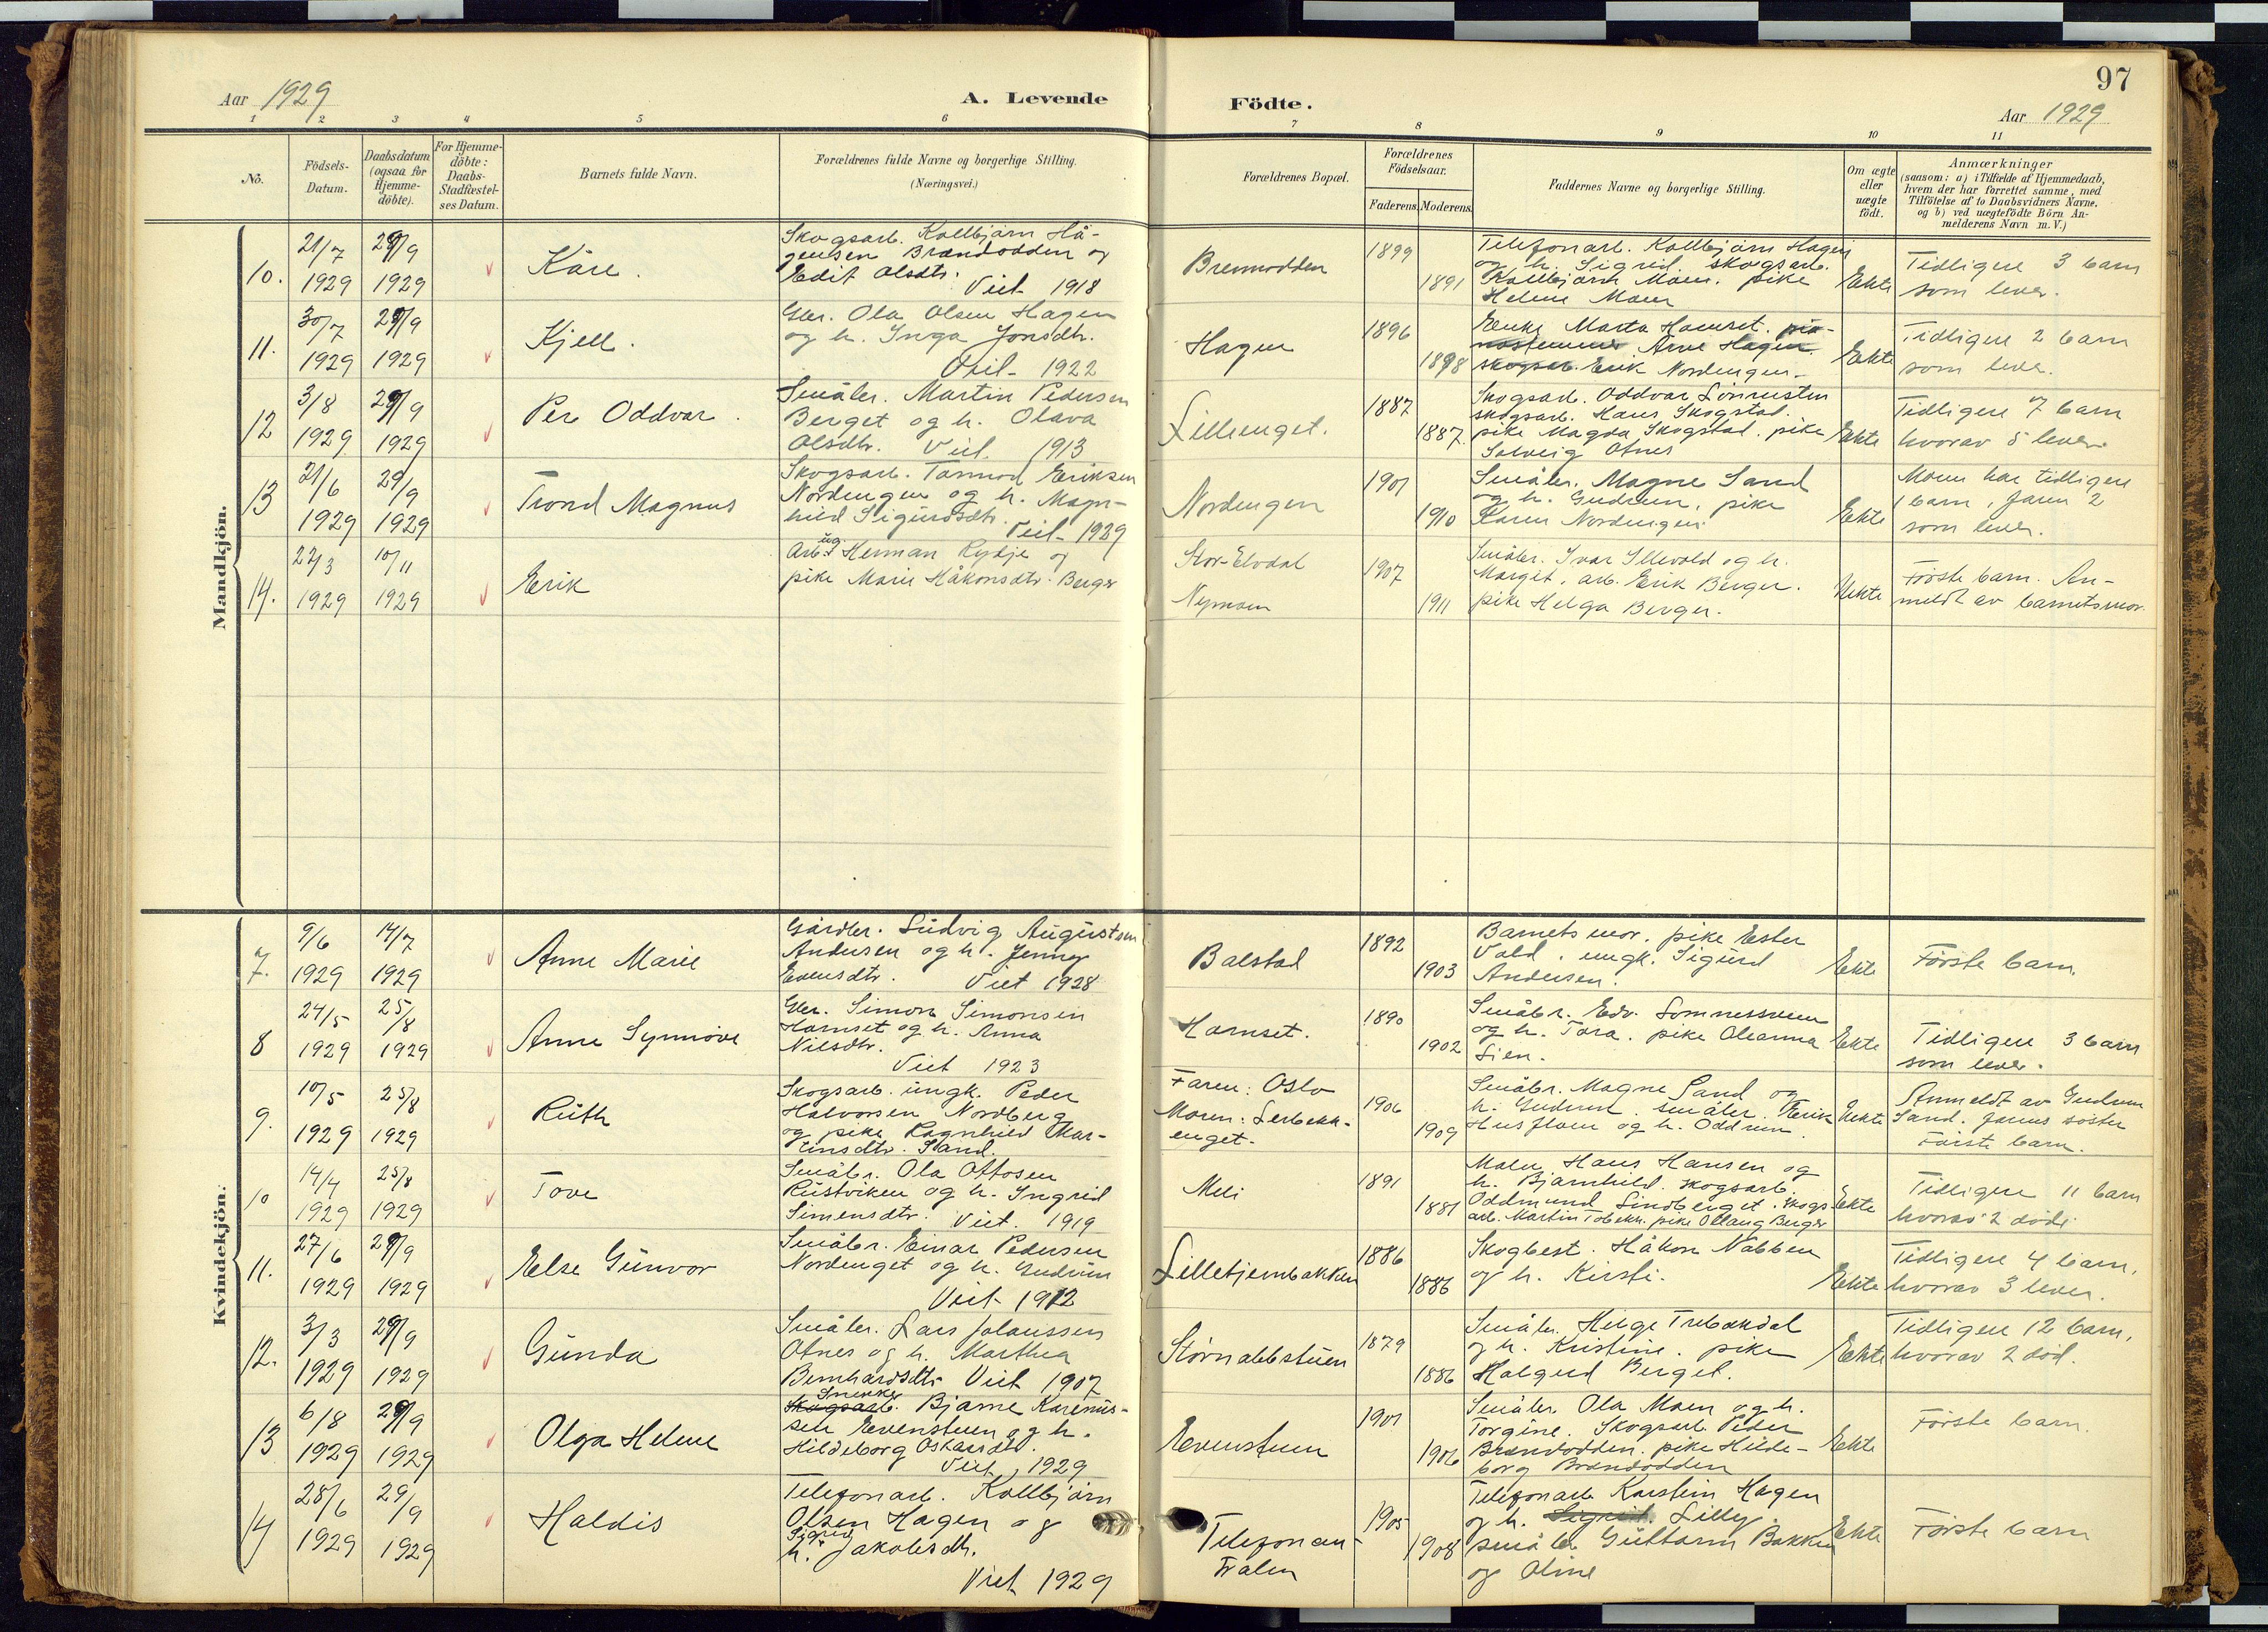 97
Aar 1929
A. Levende
Födte.
Aar 1929
1 2 3 4 5 6 7 8 9 10 11
No.
Födsels-Datum.
Daabsdatum (ogsaa for Hjemme-döbte).
For Hjemme-döbte: Daabs-Stadfæstel-ses Datum.
Barnets fulde Navn.
Forældrenes fulde Navne og borgerlige Stilling.
(Næringsvei.)
Forældrenes Bopæl.
Forældrenes Födselsaar.
Faderens. Moderens.
Faddernes Navne og borgerlige Stilling.
Om ægte eller uægte födt.
Anmærkninger
(saasom: a) i Tilfælde af Hjemmedaab, hvem der har forrettet samme, med Tilföielse af to Daabsvidners Navne, og b) ved uægtefödte Börn Anmelderens Navn m. V.)
Mandkjön.
10. 21/7 1929 29/9 1929 Kåre.
Skogsarb. Kollbjørn Hå-
gensen Brændodden og
Edit Olsdtr. Viet 1918
Brennodden
1899 1891
Telefonarb. Kollbjørn Hagen
og h. Sigrid. skogsarb.
Kollbjørn Moen. pike
Helene Moen
Ekte
Tidligere 3 barn
som lever.
11. 30/7 1929 29/9 1929 Kjell.
Gbr. Ola Olsen Hagen
og h. Inga Jonsdtr.
Viet 1922
Hagen
1896 1898
Enke Marta Hamset.
Arne Hagen.
skogsarb. Erik Nordengen.
Ekte
Tidligere 2 barn
som lever.
12 3/8 1929 29/9 1929 Per Oddvar.
Småbr. Martin Pedersen
Berget og h. Olava
Olsdtr. Viet. 1913
Lilleenget.
1887 1887.
Skogsarb. Oddvar
skogsarb. Hans Skogstad.
pike Magda Skogstad. pike
Solveig Otnes
Ekte
Tidligere 7 barn
hvorav 5 lever.
13 21/6 1929 29/9 1929 Trond Magnus
Skogsarb. Tormod Eriksen
Nordengen og h. Magn-
hild Sigurdsdtr. Viet 1929
Nordengen
1901 1910
Småbr. Magne Sand
og h. Gudrun, pike
Karen Nordengen
Ekte
Moren har tidligere
1 barn, faren 2
som lever.
14. 22/3 1929 10/11 1929 Erik
Arb. ug. Herman Rydje og
pike Marie Håkonsdtr. Berger
Stor-Elvdal
Nymoen
1907 1911
Småbr. Ivar Illevold og h.
Margit. arb. Erik Berger.
pike Helga Berger.
Uekte
Første barn. An-
meldt av barnets mor.
Kvindekjön.
7. 9/6 1929 14/7 1929 Anne Marie
Gårdbr. Ludvig Augustsen
Andersen og h. Jenny
Evensdtr. Viet 1928
Balstad
1892 1903
Barnets mor. pike Ester
Vold. ungk. Sigurd
Andersen.
Ekte
Første barn.
8 24/5 1929 25/8 1929 Anne Synnøve
Gbr. Simon Simonsen
Hornset og h. Anna
Nilsdtr.
Viet 1923
Hornset.
1890 1902
Småbr. Edv.
og h. Tora. pike Oleanna
Lien.
Ekte
Tidligere 3 barn
som lever.
9. 10/5 1929 25/8 1929 Ruth
Skogsarb. ungk. Peder
Halvorsen Nordberg
og pike Ragnhild Mar-
tinsdtr. Sand.
Faren: Oslo
Moren: Lerbekk-
enget.
1906 1909
Småbr. Magne Sand og
h. Gudrun. småbr. Erik
Husfloen og h. Oddrun
Uekte
Anmeldt av Gudrun
Sand. farens søster
Første barn.
10 14/4 1929 25/8 1929 Tove
Småbr. Ola Ottosen
Rustviken og h. Ingrid
Simensdtr. Viet. 1919
Meli
1891 1881
Maler Hans Hansen og
h. Bjarnhild. skogsarb.
Oddmund Lindberget. skogs-
arb. Martin Tobekk. pike Ollaug Berger
Ekte
Tidligere 11 barn
hvorav 2 døde
11. 27/6 1929 29/9 1929 Else Gunvor
Småbr. Einar Pedersen
Nordenget og h. Gudrun
Viet 1912
Lilletjernbakken
1886 1886
Skogbest. Håkon Nabben
og h. Kirsti.
Ekte
Tidligere 4 barn,
hvorav 3 lever.
12. 3/3 1929 29/9 1929 Gunda
Småbr. Lars Johanssen
Otnes og h. Marthea
Bernhardsdtr Viet 1907
Stornabbstuen
1879 1886
Småbr. Helge Trebækdal
og h. Kristine. pike
Halgerd Berget.
Ekte
Tidligere 12 barn,
hvorav 2 død.
13 6/8 1929 29/9 1929 Olga Helene
Snekker
Skogsarb. Bjarne Karenus-
sen Evenstuen og h.
Hildeborg Oskarsdtr.
Viet 1929
Evenstuen
1901 1906
Småbr. Ola Moen og h.
Torgine. Skogsarb. Peder
Brændodden. pike Hilde-
borg Brændodden
Ekte
Første barn.
14 28/6 1929 29/9 1929 Haldis
Telefonarb. Kollbjørn
Olsen Hagen og
Sigrid
h. Jakobsdtr.
Viet 1929
Telefonsen-
tralen
1905 1908
Telefonarb. Karsten Hagen
og h. Sigrid Lilly.
småbr. Guttorm Bakken
og Oline
Ekte
Første barn